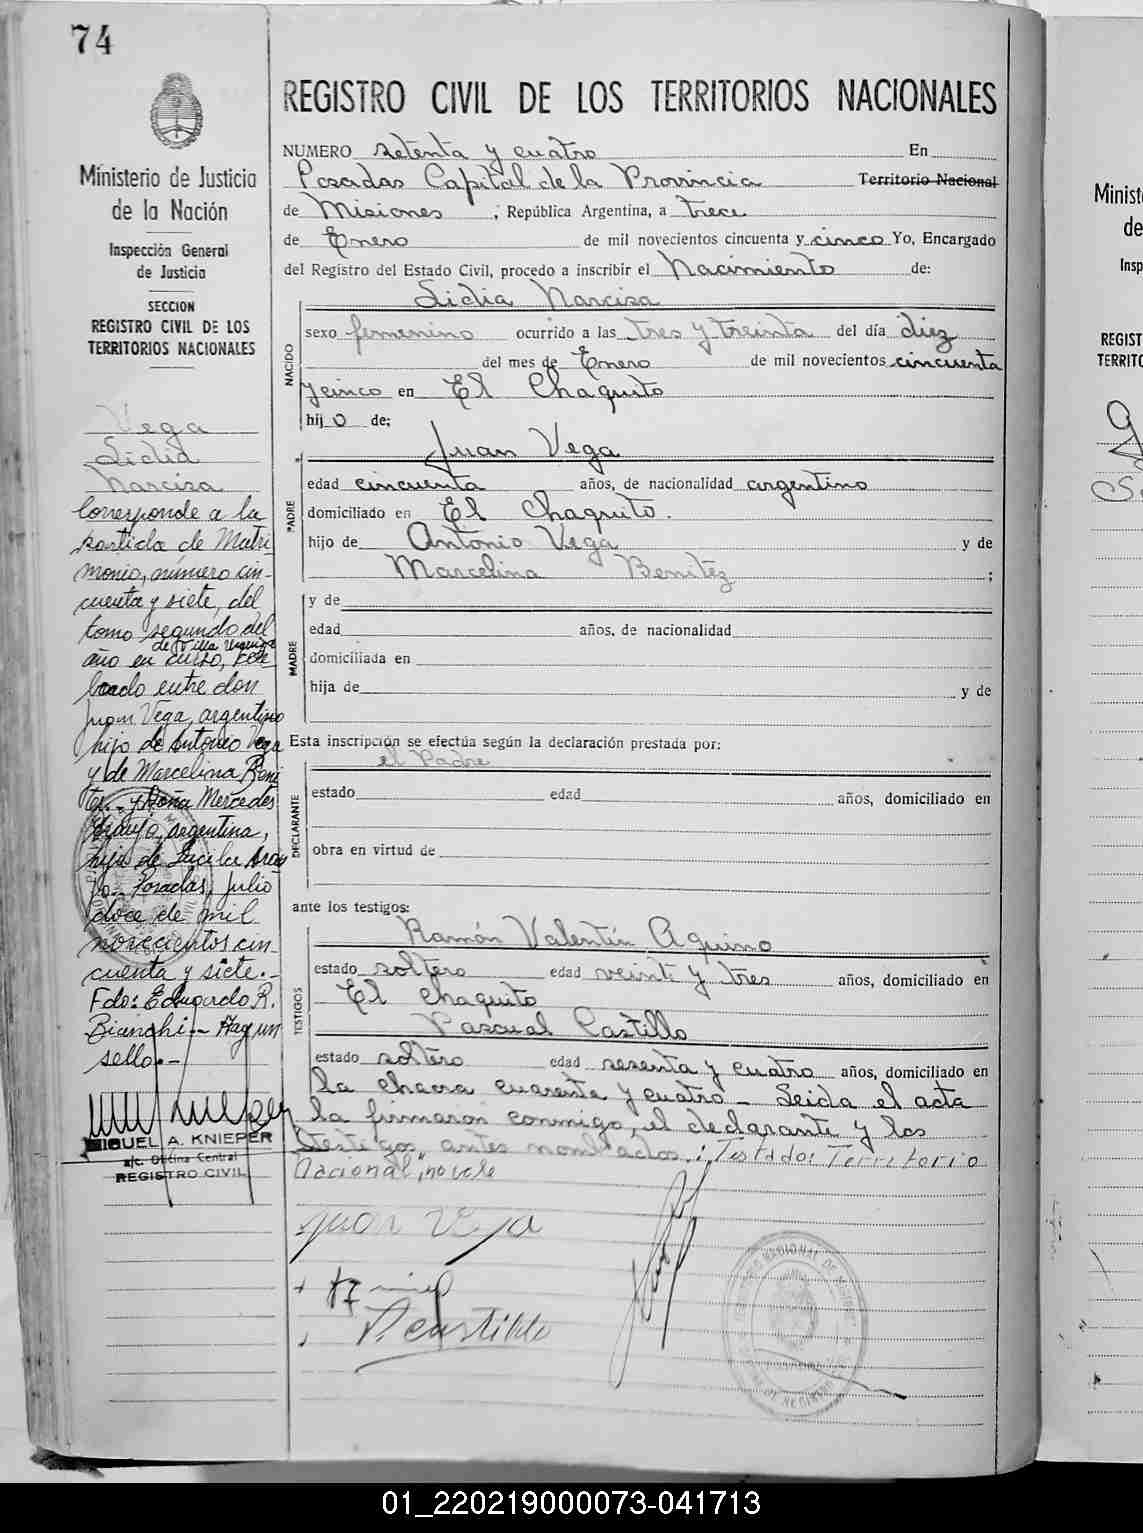 74
Ministerio de Justicia
de la Nación
Inspección General
de Justicia
SECCION
REGISTRO CIVIL DE LOS
TERRITORIOS NACIONALES
Vega
Lidia
Narcisa
Corresponde a la
partida de Matri
monio, número cin-
cuenta y siete, del
tomo segundo del
de Villa Urquiza
año en curso, cele
brado entre don
Juan Vega, argentino
hijo de Antonio Vega
y de Marcelina Beni
tez.- y doña Mercedes
Araujo, argentina,
hija de Lucila Arau
jo.- Posadas, Julio
doce de mil
novecientos cin
cuenta y siete.-
Fdo: Eduardo R.
Bianchi.- Hay un
sello.-
MIGUEL A. KNIEPER
a/c. Oficina Central
REGISTRO CIVIL
REGISTRO CIVIL DE LOS TERRITORIOS NACIONALES
NUMERO setenta y cuatro En
Posadas Capital de la Provincia Territorio Nacional
de Misiones, República Argentina, a trece
de Enero de mil novecientos cincuenta y cinco Yo, Encargado
del Registro del Estado Civil, procedo a inscribir el Nacimiento de:
NACIDO
Lidia Narcisa
sexo femenino ocurrido a las tres y treinta del día diez
del mes de Enero de mil novecientos cincuenta
y cinco en El Chaquito
hijo de:
PADRE
Juan Vega
edad cincuenta años, de nacionalidad argentino
domiciliado en El Chaquito.
hijo de Antonio Vega y de
Marcelina Benitez ;
MADRE
y de
edad años, de nacionalidad
domiciliada en
hija de y de
Esta inscripción se efectúa según la declaración prestada por:
DECLARANTE
el Padre
estado edad años, domiciliado en
obra en virtud de
ante los testigos:
TESTIGOS
Ramón Valentín Aquino
estado soltero edad veinti y tres años, domiciliado en
El Chaquito
Pascual Castillo
estado soltero edad sesenta y cuatro años, domiciliado en
la chacra cuarenta y cuatro - Leida el acta
la firmaron conmigo, el declarante y los
testigos, antes nombrados.; Testado: Territorio
Nacional, no vale
Juan Vega
P. Castillo
01_220219000073-041713